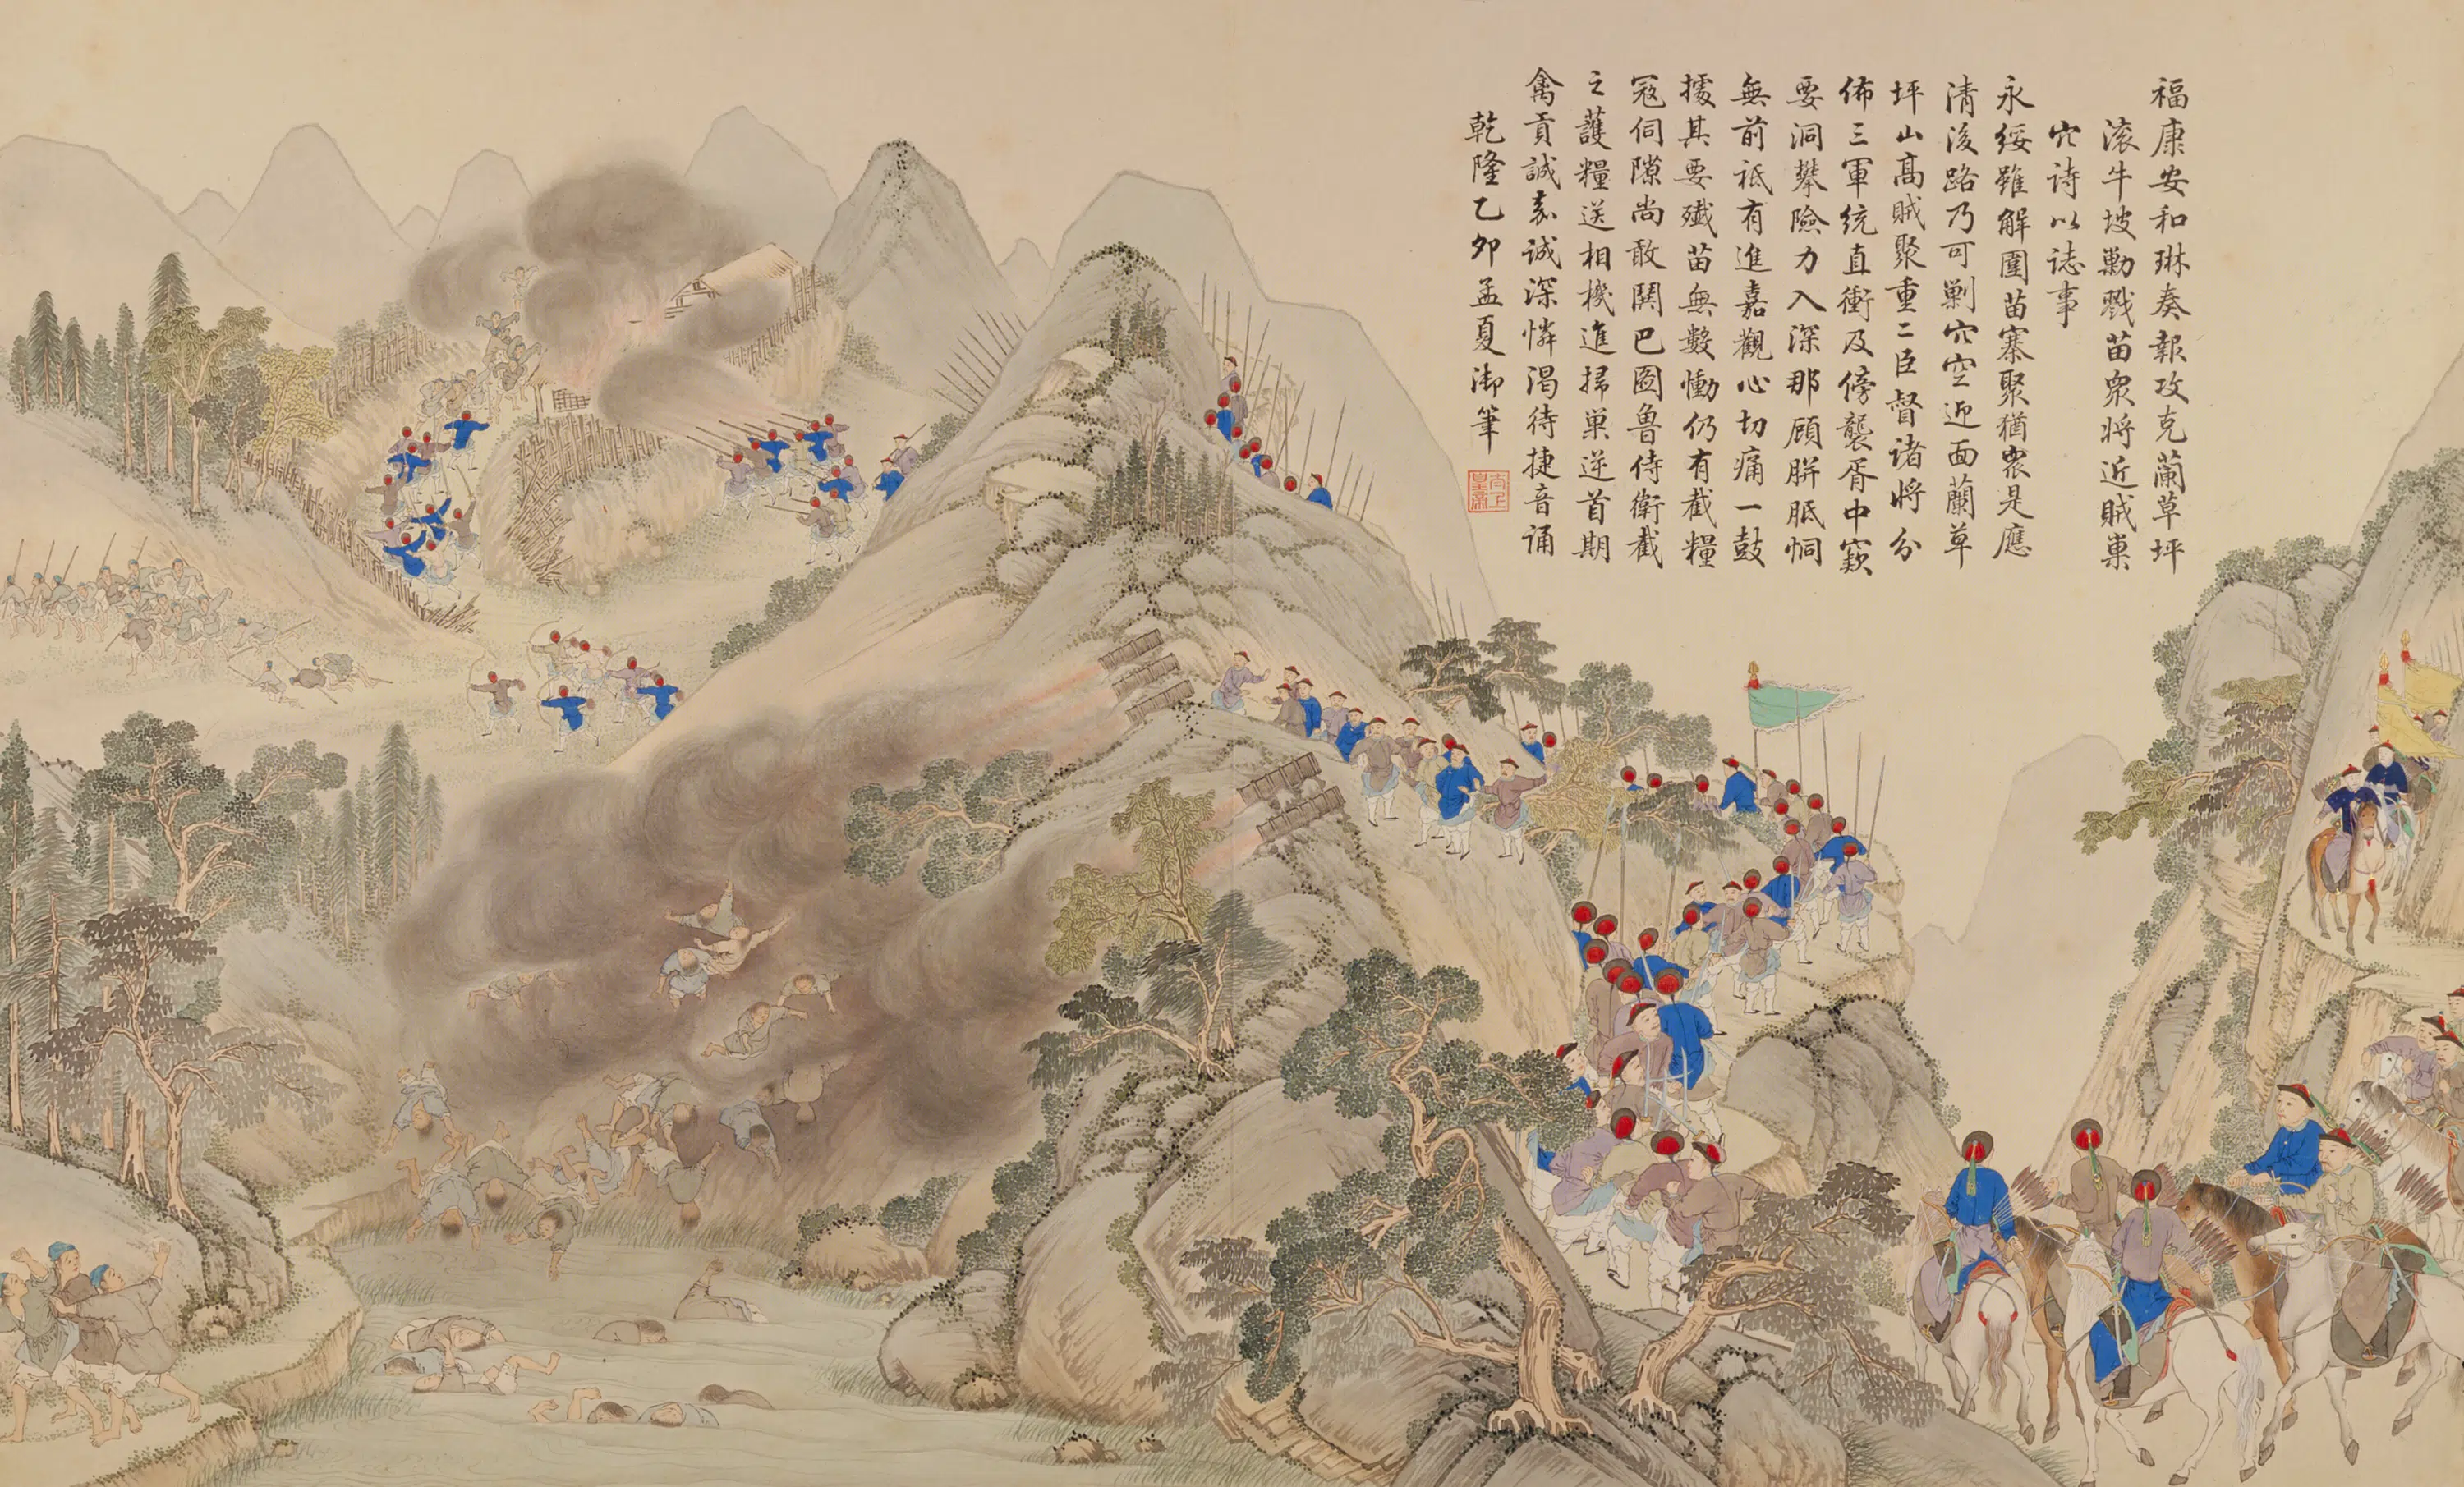 福康安和琳奏報攻克蘭草坪
滚牛坡勦戮苗眾将近賊巢
穴詩以誌事
永綏雖解圍苗寨聚猶眾是應
清後路乃可剿穴空迎面蘭草
坪山髙賊聚重二臣督诸将分
佈三軍统直衝及傍襲胥中窾
要洞攀險力入深那顧胼胝恫
無前祗有進嘉觀心切痛一鼓
擄其要殲苗無數慟仍有截糧
冦伺隙尚敢鬨巴圖鲁侍衛截
之護糧送相機進掃巢逆首期
禽貢誠嘉誠深憐渴待捷音誦
乾隆乙卯孟夏御筆
太上皇帝